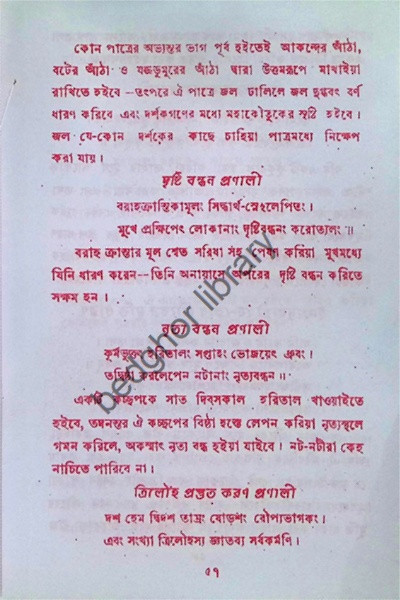 কোন পাত্রের অভ্যন্তর ভাগ পূর্ব হইতেই আকন্দের আঁঠা,
বটের আঁঠা ও যজ্ঞডুমুরের আঁঠা দ্বারা উত্তমরূপে মাখাইয়া
রাখিতে হইবে—তৎপরে ঐ পাত্রে জল ঢালিলে জল দুগ্ধবৎ বর্ণ
ধারণ করিবে এবং দর্শকগণের মধ্যে মহাকৌতুকের সৃষ্টি হইবে।
জল যে-কোন দর্শকের কাছে চাহিয়া পাত্রমধ্যে নিক্ষেপ
করা যায়।
দৃষ্টি বন্ধন প্রণালী
বরাহক্রান্তিকামূলং সিদ্ধার্থ-স্নেহলেপিতং।
মুখে প্রক্ষিপেৎ লোকানাং দৃষ্টিবন্ধনং করোত্যলং॥
বরাহ ক্রান্তার মূল শ্বেত সরিষা সহ পেষণ করিয়া মুখমধ্যে
যিনি ধারণ করেন—তিনি অনায়াসে অপরের দৃষ্টি বন্ধন করিতে
সক্ষম হন।
নৃত্য বন্ধন প্রণালী
কূর্মভুক্তং হরিতালং সপ্তাহং ভোজয়েৎ ধ্রুবং।
তদ্বিষ্ঠা করলেপেন নটানাং নৃত্যবন্ধন॥
একটি কচ্ছপকে সাত দিবসকাল হরিতাল খাওয়াইতে
হইবে, তদনন্তর ঐ কচ্ছপের বিষ্ঠা হস্তে লেপন করিয়া নৃত্যস্থলে
গমন করিলে, অকস্মাৎ নৃত্য বন্ধ হইয়া যাইবে। নট-নটীরা কেহ
নাচিতে পারিবে না।
ত্রিলৌহ প্রস্তুত করণ প্রণালী
দশ হেম দ্বিদশ তাম্রং ষোড়শং রৌপ্যভাগকং।
এবং সংখ্যা ত্রিলৌহস্য জ্ঞাতব্য সর্বকর্মণি।
৫৭
bedghor library